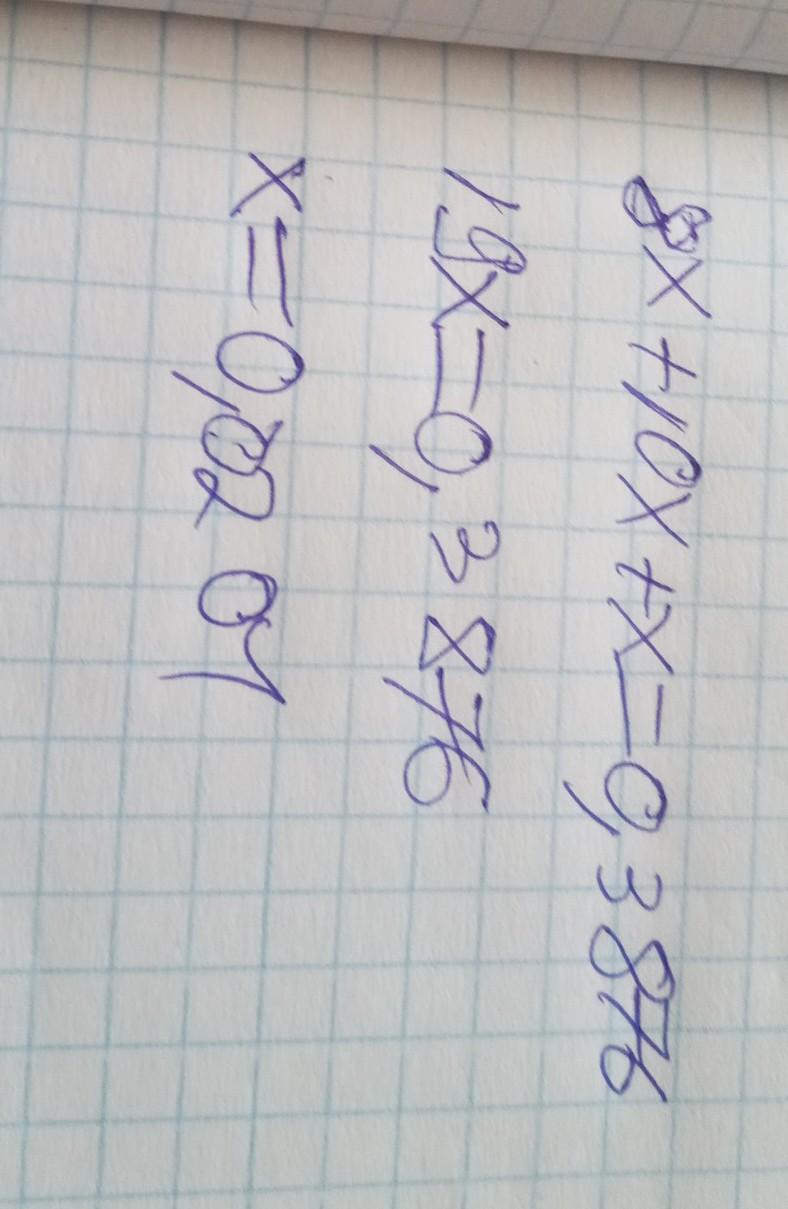 8x+10x+x=0,3876
19x=0,3876
x=0,0204